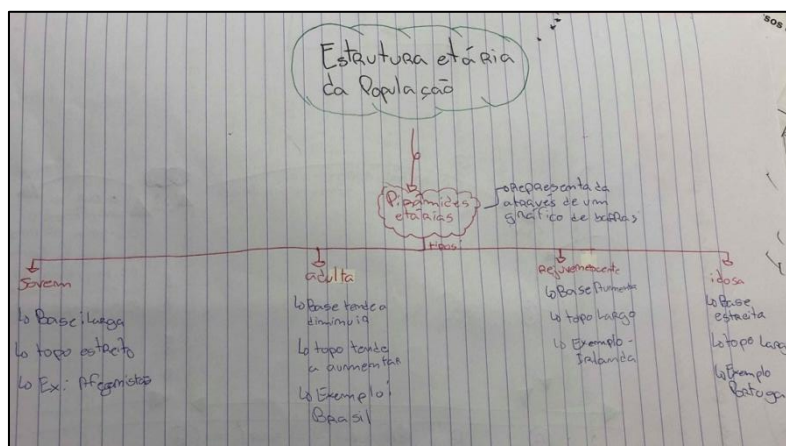 sos
Estrutura etária
da População
Pirâmides
etárias
Representada
através de um
gráfico de barras
tipos:
Jovem
Base: Larga
topo estreito
Ex: Afeganistão
adulta
Base tende a
diminuir
topo tende
a aumentar
Exemplo:
Brasil
Rejuvenescente
Base Aumenta
topo Largo
Exemplo -
Irlanda
idosa
Base
estreita
topo Larg
Exemplo
Portuga